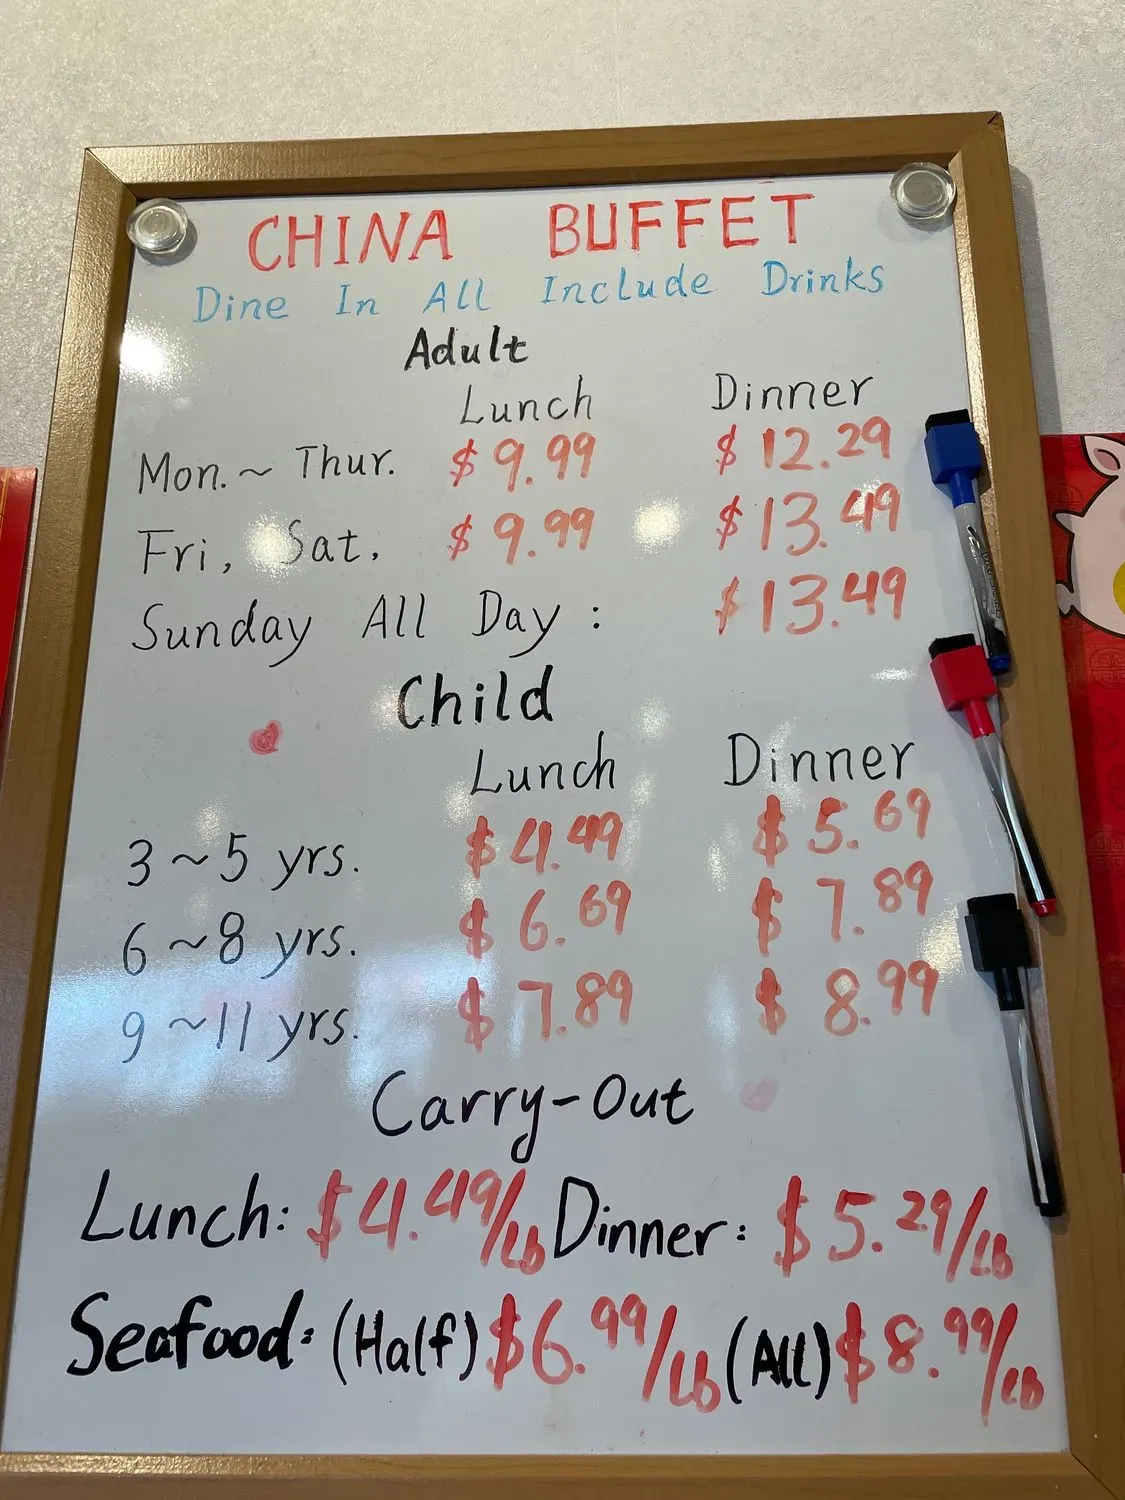 CHINA BUFFET
Dine In All Include Drinks
Adult
Lunch Dinner
Mon. ~ Thur. $9.99 $12.29
Fri, Sat. $9.99 $13.49
Sunday All Day : $13.49
Child
Lunch Dinner
3 ~ 5 yrs. $4.49 $5.69
6 ~ 8 yrs. $6.69 $7.89
9 ~ 11 yrs. $7.89 $8.99
Carry-Out
Lunch: $4.49/LB Dinner: $5.29/LB
Seafood: (Half) $6.99/LB (All) $8.99/LB